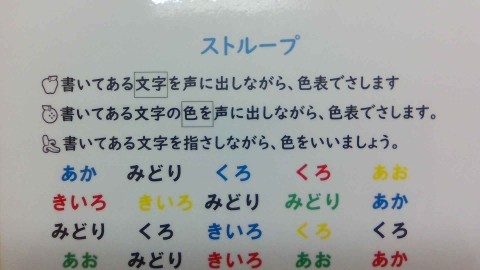 ストループ
書いてある文字を声に出しながら、色表でさします
書いてある文字の色を声に出しながら、色表でさします。
書いてある文字を指さしながら、色をいいましょう。
あか みどり くろ くろ あお
きいろ きいろ みどり みどり あか
みどり くろ きいろ くろ くろ
あお みどり きいろ あお あか